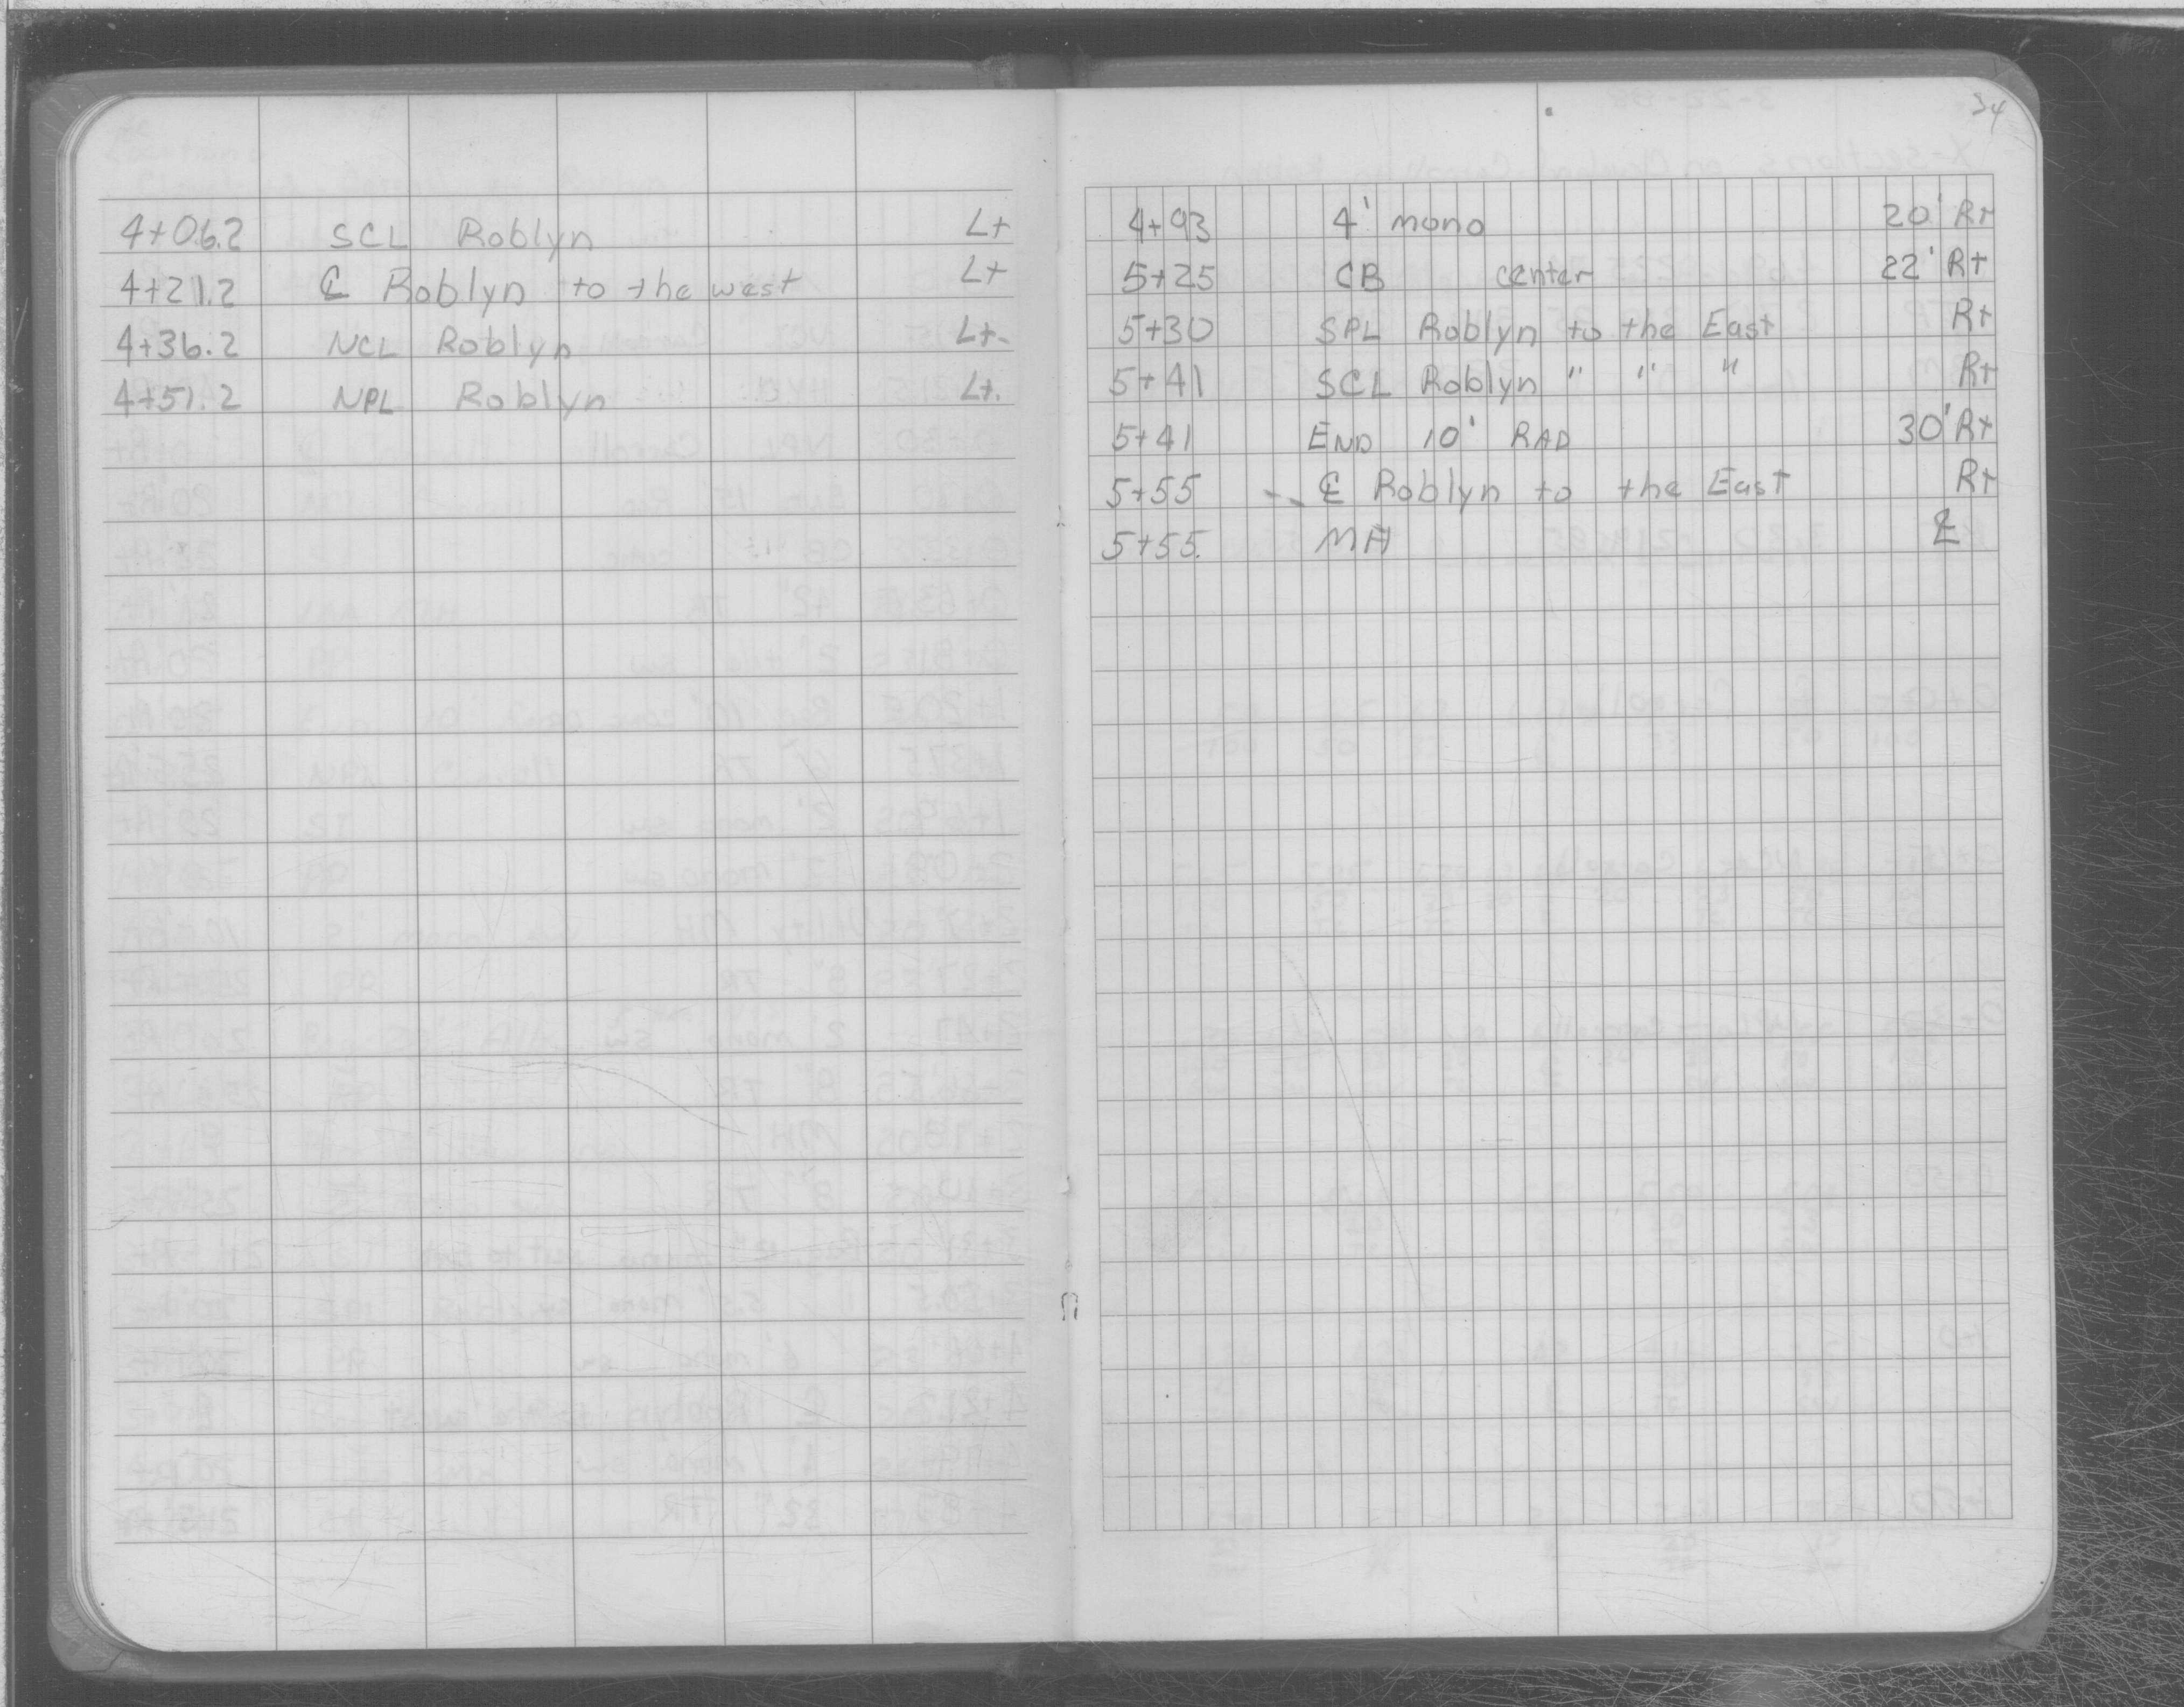 4+06.2 SCL Roblyn Lt
4+21.2 ℄ Roblyn to the west Lt
4+36.2 NCL Roblyn Lt.
4+51.2 NPL Roblyn Lt.
34
4+93 4' mono 20' Rt
5+25 CB center 22' Rt
5+30 SPL Roblyn to the East Rt
5+41 SCL Roblyn " " " Rt
5+41 END 10' RAD 30' Rt
5+55 ℄ Roblyn to the East Rt
5+55. MH ℄